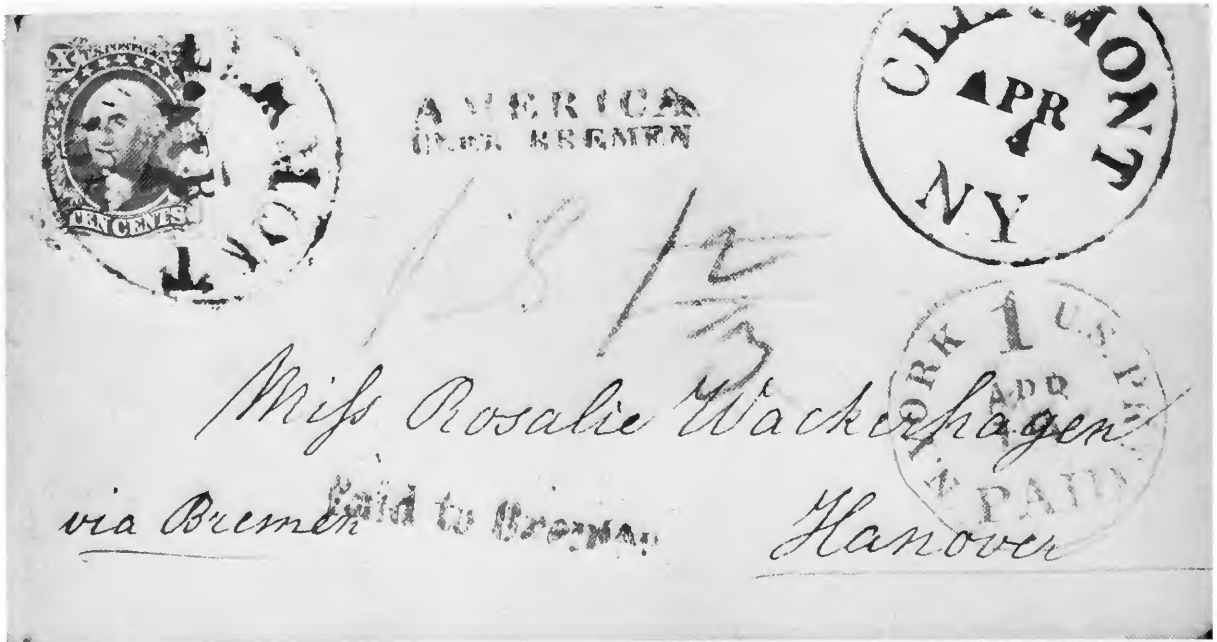 X U.S. POSTAGE
TEN CENTS
YORK
AMERICA
ÜBER BREMEN
CLERMONT
APR
4
NY
1 8 1/2
3
N. YORK 1 U.S. PKT
APR
PAID
Miss Rosalie Wackerhagen
via Bremen
Paid to Bremen.
Hanover